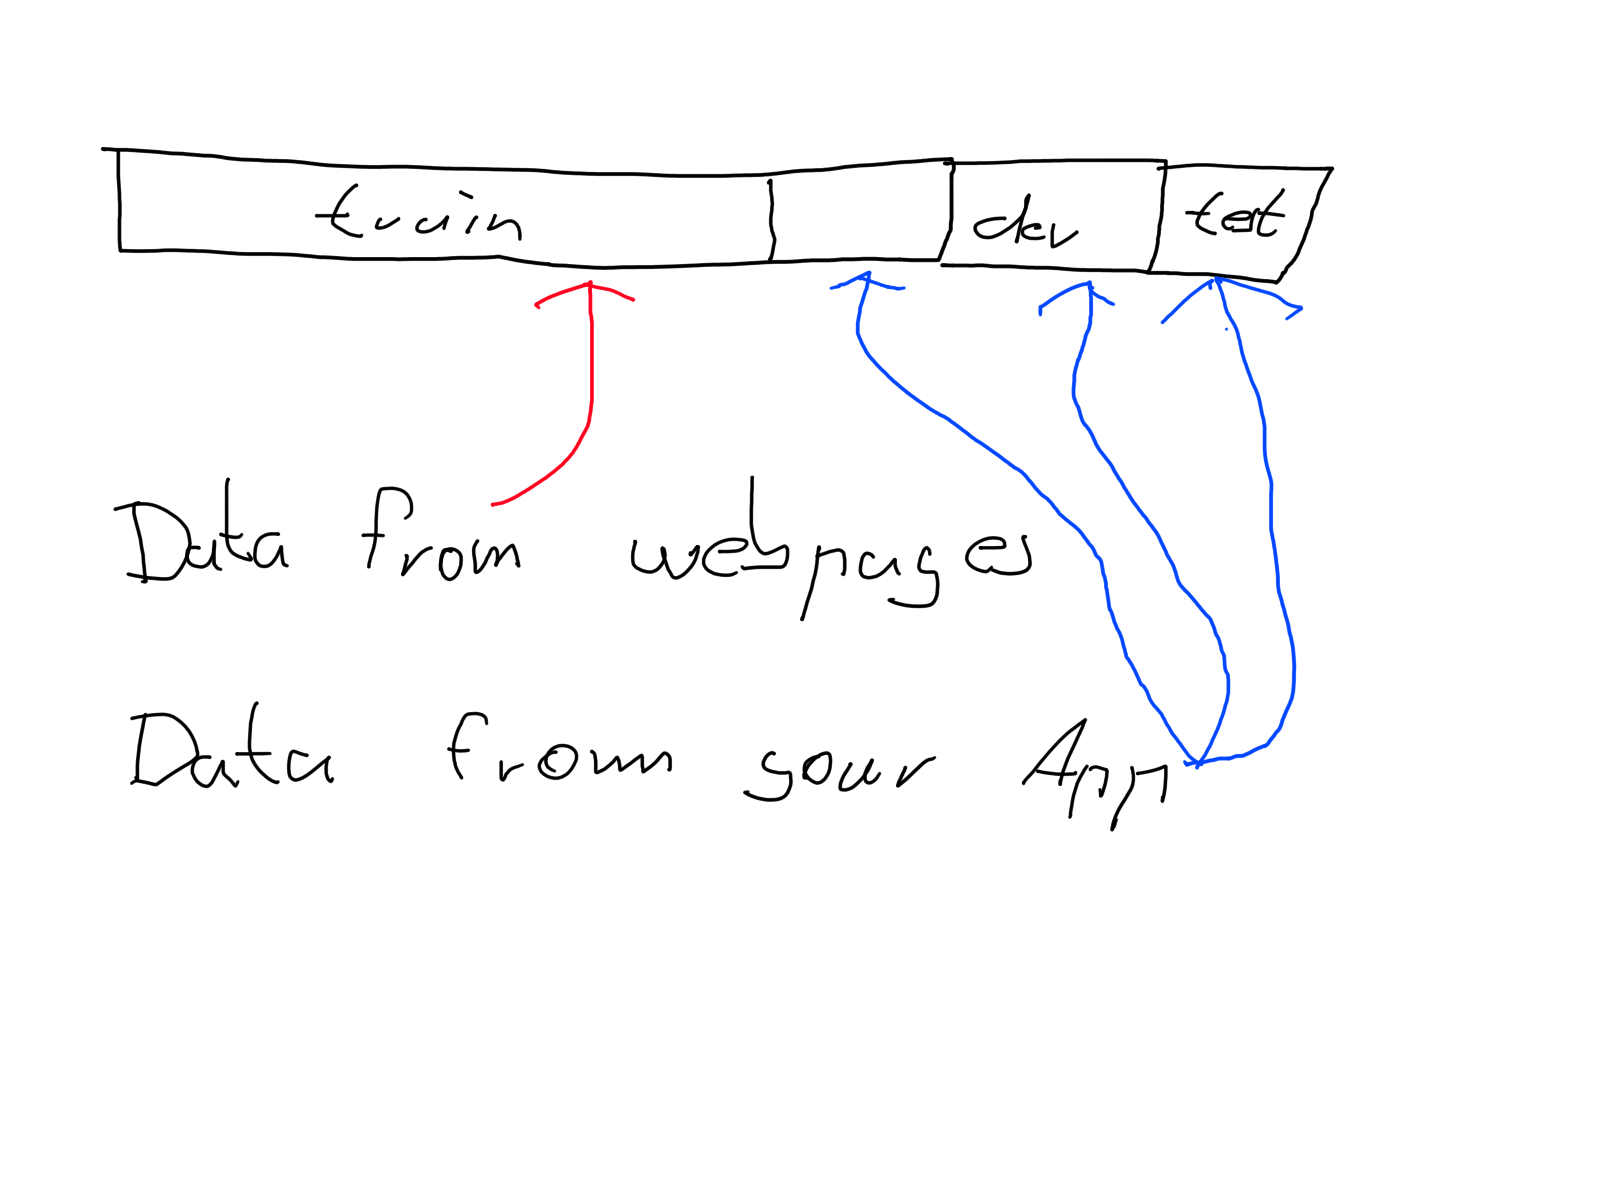 train dev test
Data from webpages
Data from your App